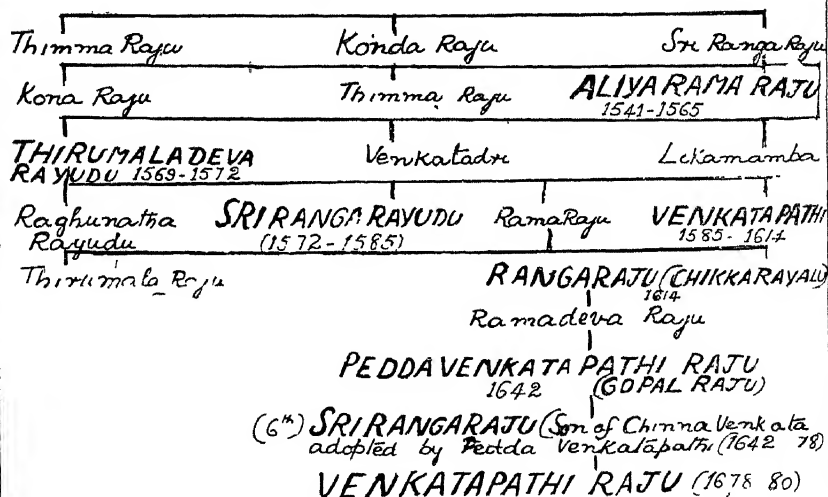 Thimma Raju Konda Raju Sri Ranga Raju
Kona Raju Thimma Raju ALIYA RAMA RAJU
1541-1565
THIRUMALADEVA Venkatadri Lekamamba
RAYUDU 1569-1572
Raghunatha SRI RANGA RAYUDU Rama Raju VENKATAPATHI
Rayudu (1572-1585) 1585-1614
Thirumala Raju RANGARAJU (CHIKKARAYALU)
1614
Ramadeva Raju
PEDDAVENKATAPATHI RAJU
1642 (GOPAL RAJU)
(6th) SRIRANGARAJU (Son of Chinna Venkata
adopted by Pedda Venkatapathi (1642 78)
VENKATAPATHI RAJU (1678 80)